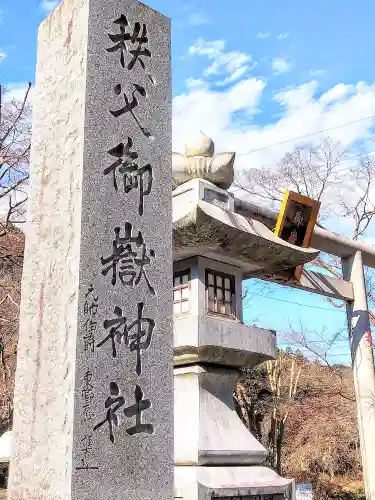 秩父御嶽神社
元帥伯爵 東郷平八郎書